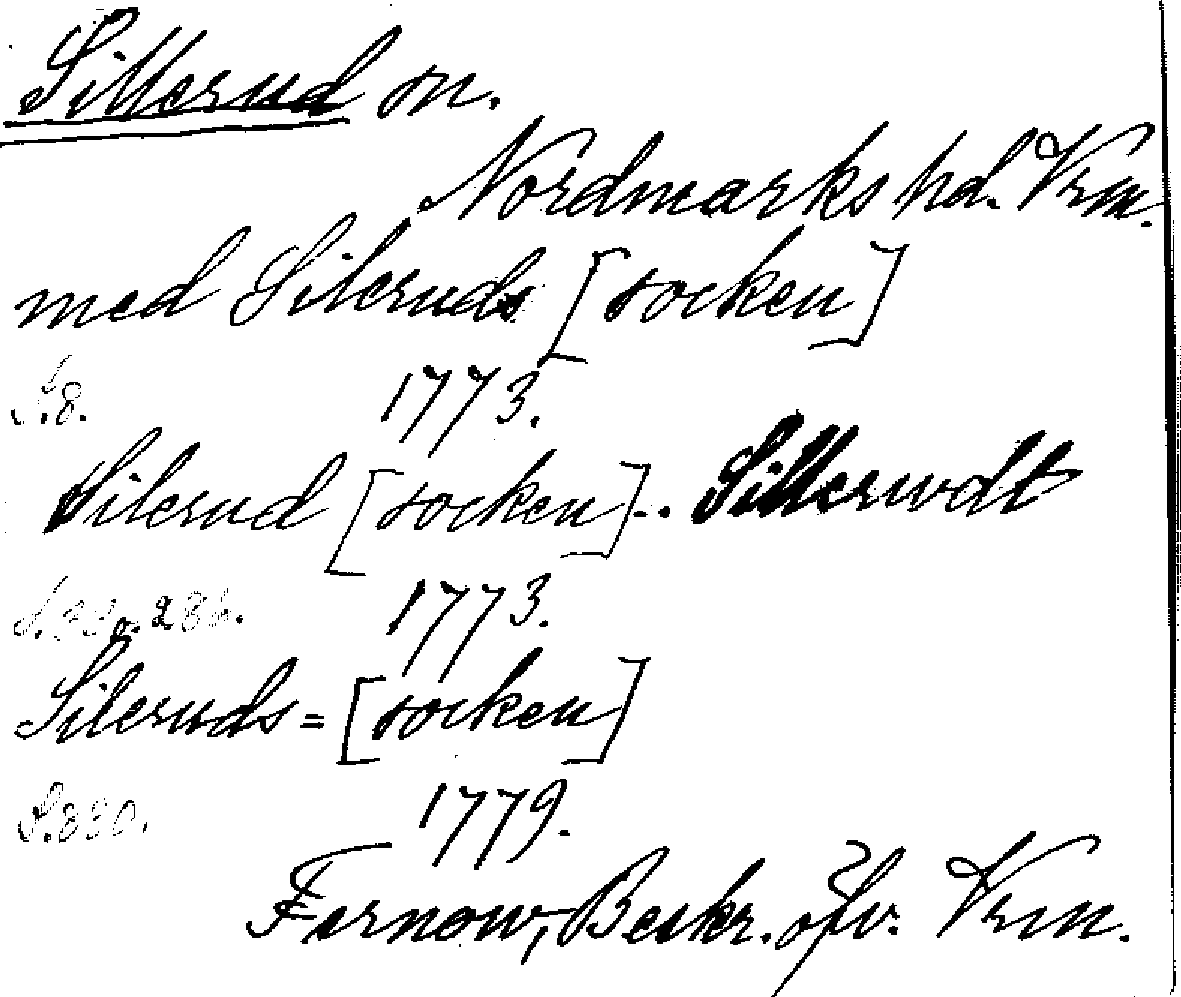 Sillerud sn.
Nordmarks hd. Vrm.
med Sileruds [socken]
S. 8. 1773.
Silerud [socken] .. Sillerudt
1773.
Sileruds= [socken]
S. 330. 1779.
Fernow, Beskr. öfv. Vrm.